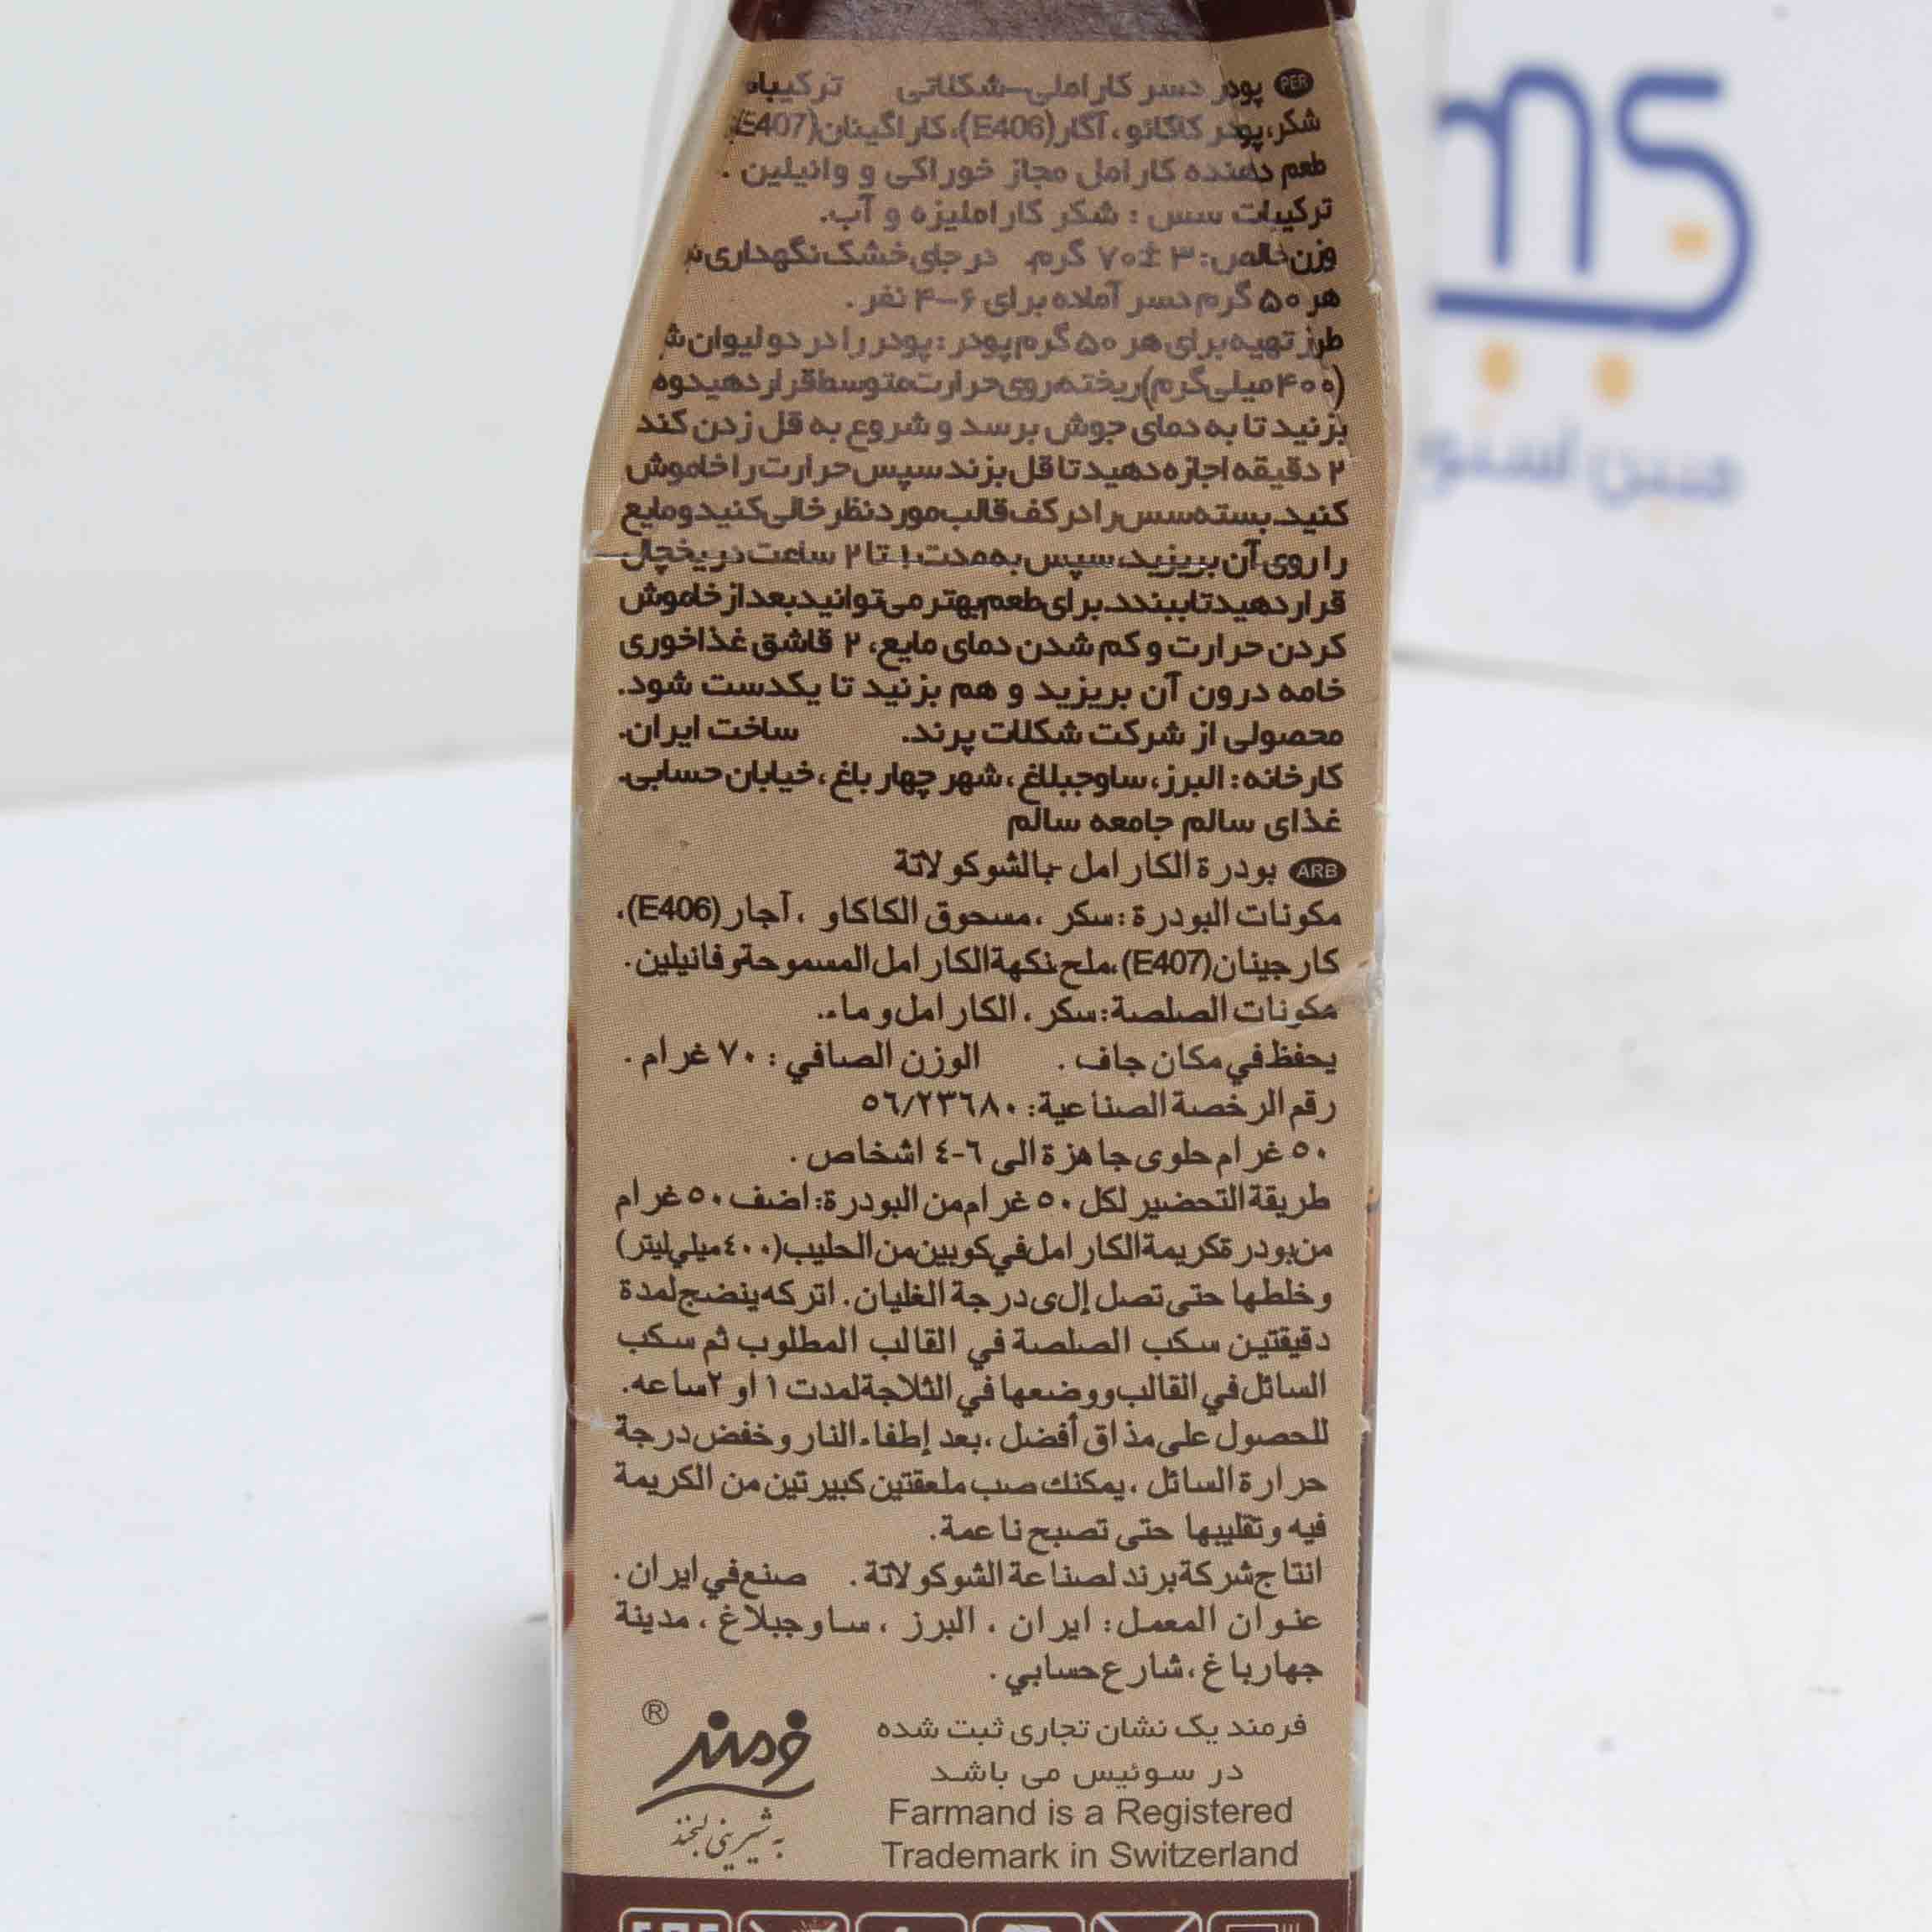 PER پودر دسر کاراملی-شکلاتی
شکر، پودر کاکائو، آگار(E406)، کاراگینان(E407)
طعم دهنده کارامل مجاز خوراکی و وانیلین .
ترکیبات سس : شکر کاراملیزه و آب.
وزن خالص: ۳ ±۷۰ گرم در جای خشک نگهداری
هر ۵۰ گرم دسر آماده برای ۶-۴ نفر .
طرز تهیه برای هر ۵۰ گرم پودر : پودر را در دو لیوان
(۴۰۰ میلی گرم) ریخته روی حرارت متوسط قرار دهید و
بزنید تا به دمای جوش برسد و شروع به قل زدن کند
۲ دقیقه اجازه دهید تا قل بزند سپس حرارت را خاموش
کنید. بسته سس را در کف قالب مورد نظر خالی کنید و مایع
را روی آن بریزید، سپس به مدت ۱ تا ۲ ساعت در یخچال
قرار دهید تا ببندد. برای طعم بهتر می توانید بعد از خاموش
کردن حرارت و کم شدن دمای مایع، ۲ قاشق غذاخوری
خامه درون آن بریزید و هم بزنید تا یکدست شود.
محصولی از شرکت شکلات پرند. ساخت ایران.
کارخانه: البرز، ساوجبلاغ، شهر چهار باغ، خیابان حسابی.
غذای سالم جامعه سالم
ARB بودرة الكارامل -بالشوكولاتة
مكونات البودرة : سكر ، مسحوق الكاكاو ، آجار (E406)،
كارجينان(E407)، ملح نكهة الكارامل المسموحة وفانيلين .
مكونات الصلصة: سكر ، الكارامل و ماء.
يحفظ في مكان جاف . الوزن الصافي : ٧٠ غرام .
رقم الرخصة الصناعية: ٥٦/٢٣٦٨٠
٥٠ غرام حلوى جاهزة الى ٦-٤ اشخاص .
طريقة التحضير لكل ٥٠ غرام من البودرة: اضف ٥٠ غرام
من بودرة كريمة الكارامل في كوبين من الحليب (٤٠٠ ميلي ليتر)
و خلطها حتى تصل إلى درجة الغليان . اتركه ينضج لمدة
دقيقتين سكب الصلصة في القالب المطلوب ثم سكب
السائل في القالب ووضعها في الثلاجة لمدت ١ او ٢ ساعه.
للحصول على مذاق أفضل ، بعد إطفاء النار و خفض درجة
حرارة السائل ، يمكنك صب ملعقتين كبيرتين من الكريمة
فيه وتقليبها حتى تصبح ناعمة.
انتاج شركة برند لصناعة الشوكولاتة . صنع في ايران .
عنوان المعمل: ايران ، البرز ، ساوجبلاغ ، مدينة
جهارباغ ، شارع حسابي .
فرمند یک نشان تجاری ثبت شده
در سوئیس می باشد
Farmand is a Registered
Trademark in Switzerland
فرمند ®
به شیرینی لبخند
ms
مبین استو